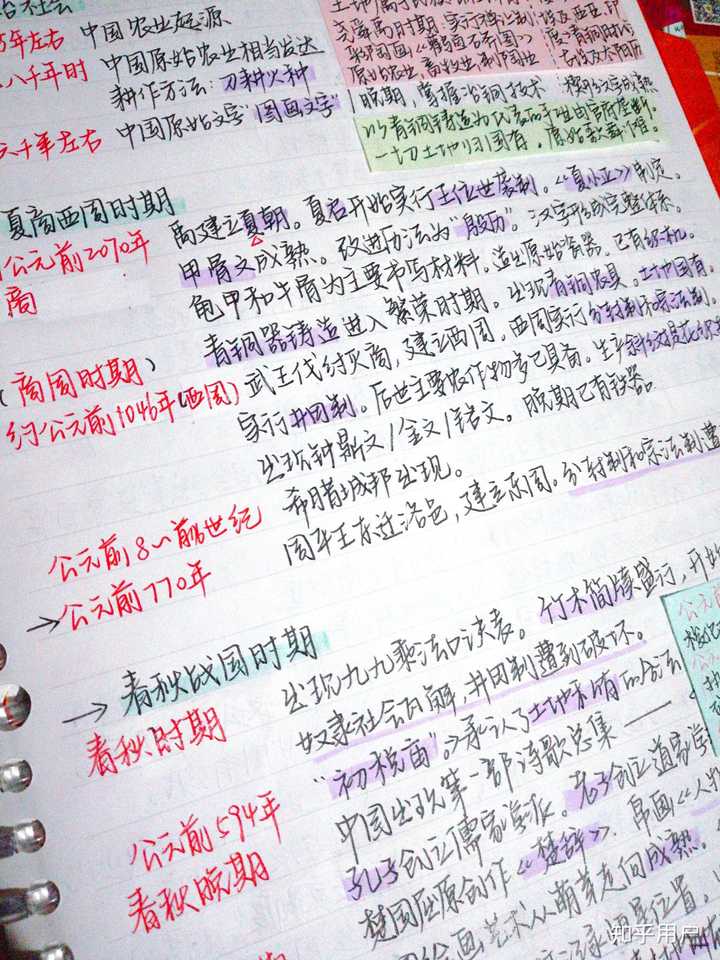 年左右 中国农业起源
八千年时 中国原始农业相当发达
耕作方法：刀耕火种
六千年左右 中国原始文字"图画文字"
尧舜禹时期，实行禅让制
彩陶画《鹳鱼石斧图》
晚期，掌握冶铜技术
一切土地归国有。
夏商西周时期
公元前2070年 禹建立夏朝。夏启开始实行王位世袭制。《夏小正》制定。
商 甲骨文成熟。改进历法为"殷历"。汉字形成完整体系。
龟甲和牛骨为主要书写材料。造出原始瓷器。已有织机。
青铜器铸造进入繁荣时期。出现青铜农具。土地国有。
（商周时期） 武王伐纣灭商，建立西周。西周实行分封制和宗法制。
约公元前1046年（西周） 实行井田制。后世主要农作物多已具备。生产斜纹提花织
出现钟鼎文/金文/铭文。晚期已有铁器。
公元前8～前6世纪 希腊城邦出现。
→公元前770年 周平王东迁洛邑，建立东周。分封制和宗法制遭
→春秋战国时期
春秋时期 出现九九乘法口诀表。竹木简牍盛行，开始
奴隶社会瓦解，井田制遭到破坏。
公元前594年 "初税亩"。承认了土地私有的合法
春秋晚期 中国出现第一部诗歌总集——
孔子创立儒家学派。老子创立道家学
楚国屈原创作《楚辞》。帛画《人
绘画艺术从萌芽走向成熟。
位置。
知乎用户